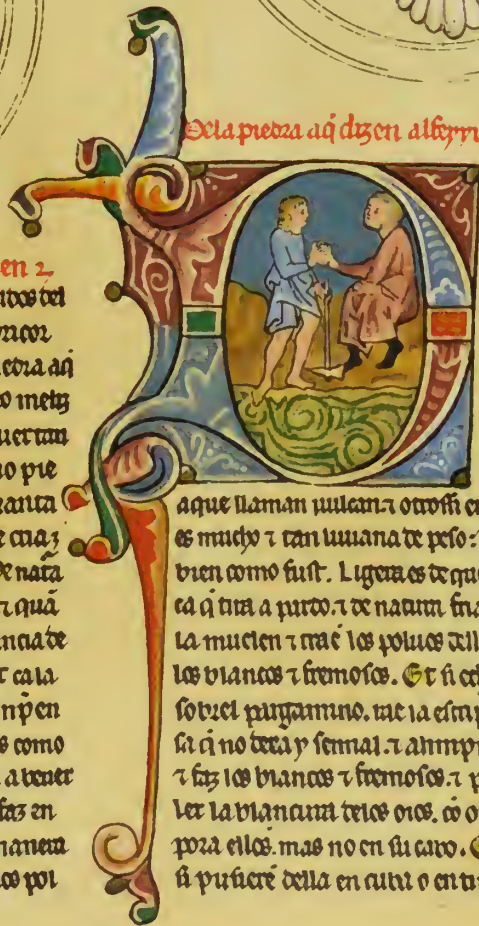 en 2
udos del
edra aq̃
uertan
o pie
ranta
De nat̃a
⁊ quã
ncia de
r ca la
s como
faz en
manera
los pol
De la piedra aq̃ dizen alferru
a que llaman uulcan ⁊ otrossi en
es mucho ⁊ tan liuiana de peso:
bien como fust. Ligera es de que
ca q̃ tira a pardo. ⁊ de natura fria
la muelen ⁊ trae los poluos della
los blancos ⁊ fremosos. Et si ech
sobrel pargamino. tae la escrip
sa q̃ no dexa y sennal. ⁊ alimpi
⁊ faz los blancos ⁊ fremosos. ⁊ p
ler la blancura delos oios. co o
pora ellos. mas no en su cabo.
si pusiere della en cuba o en ti